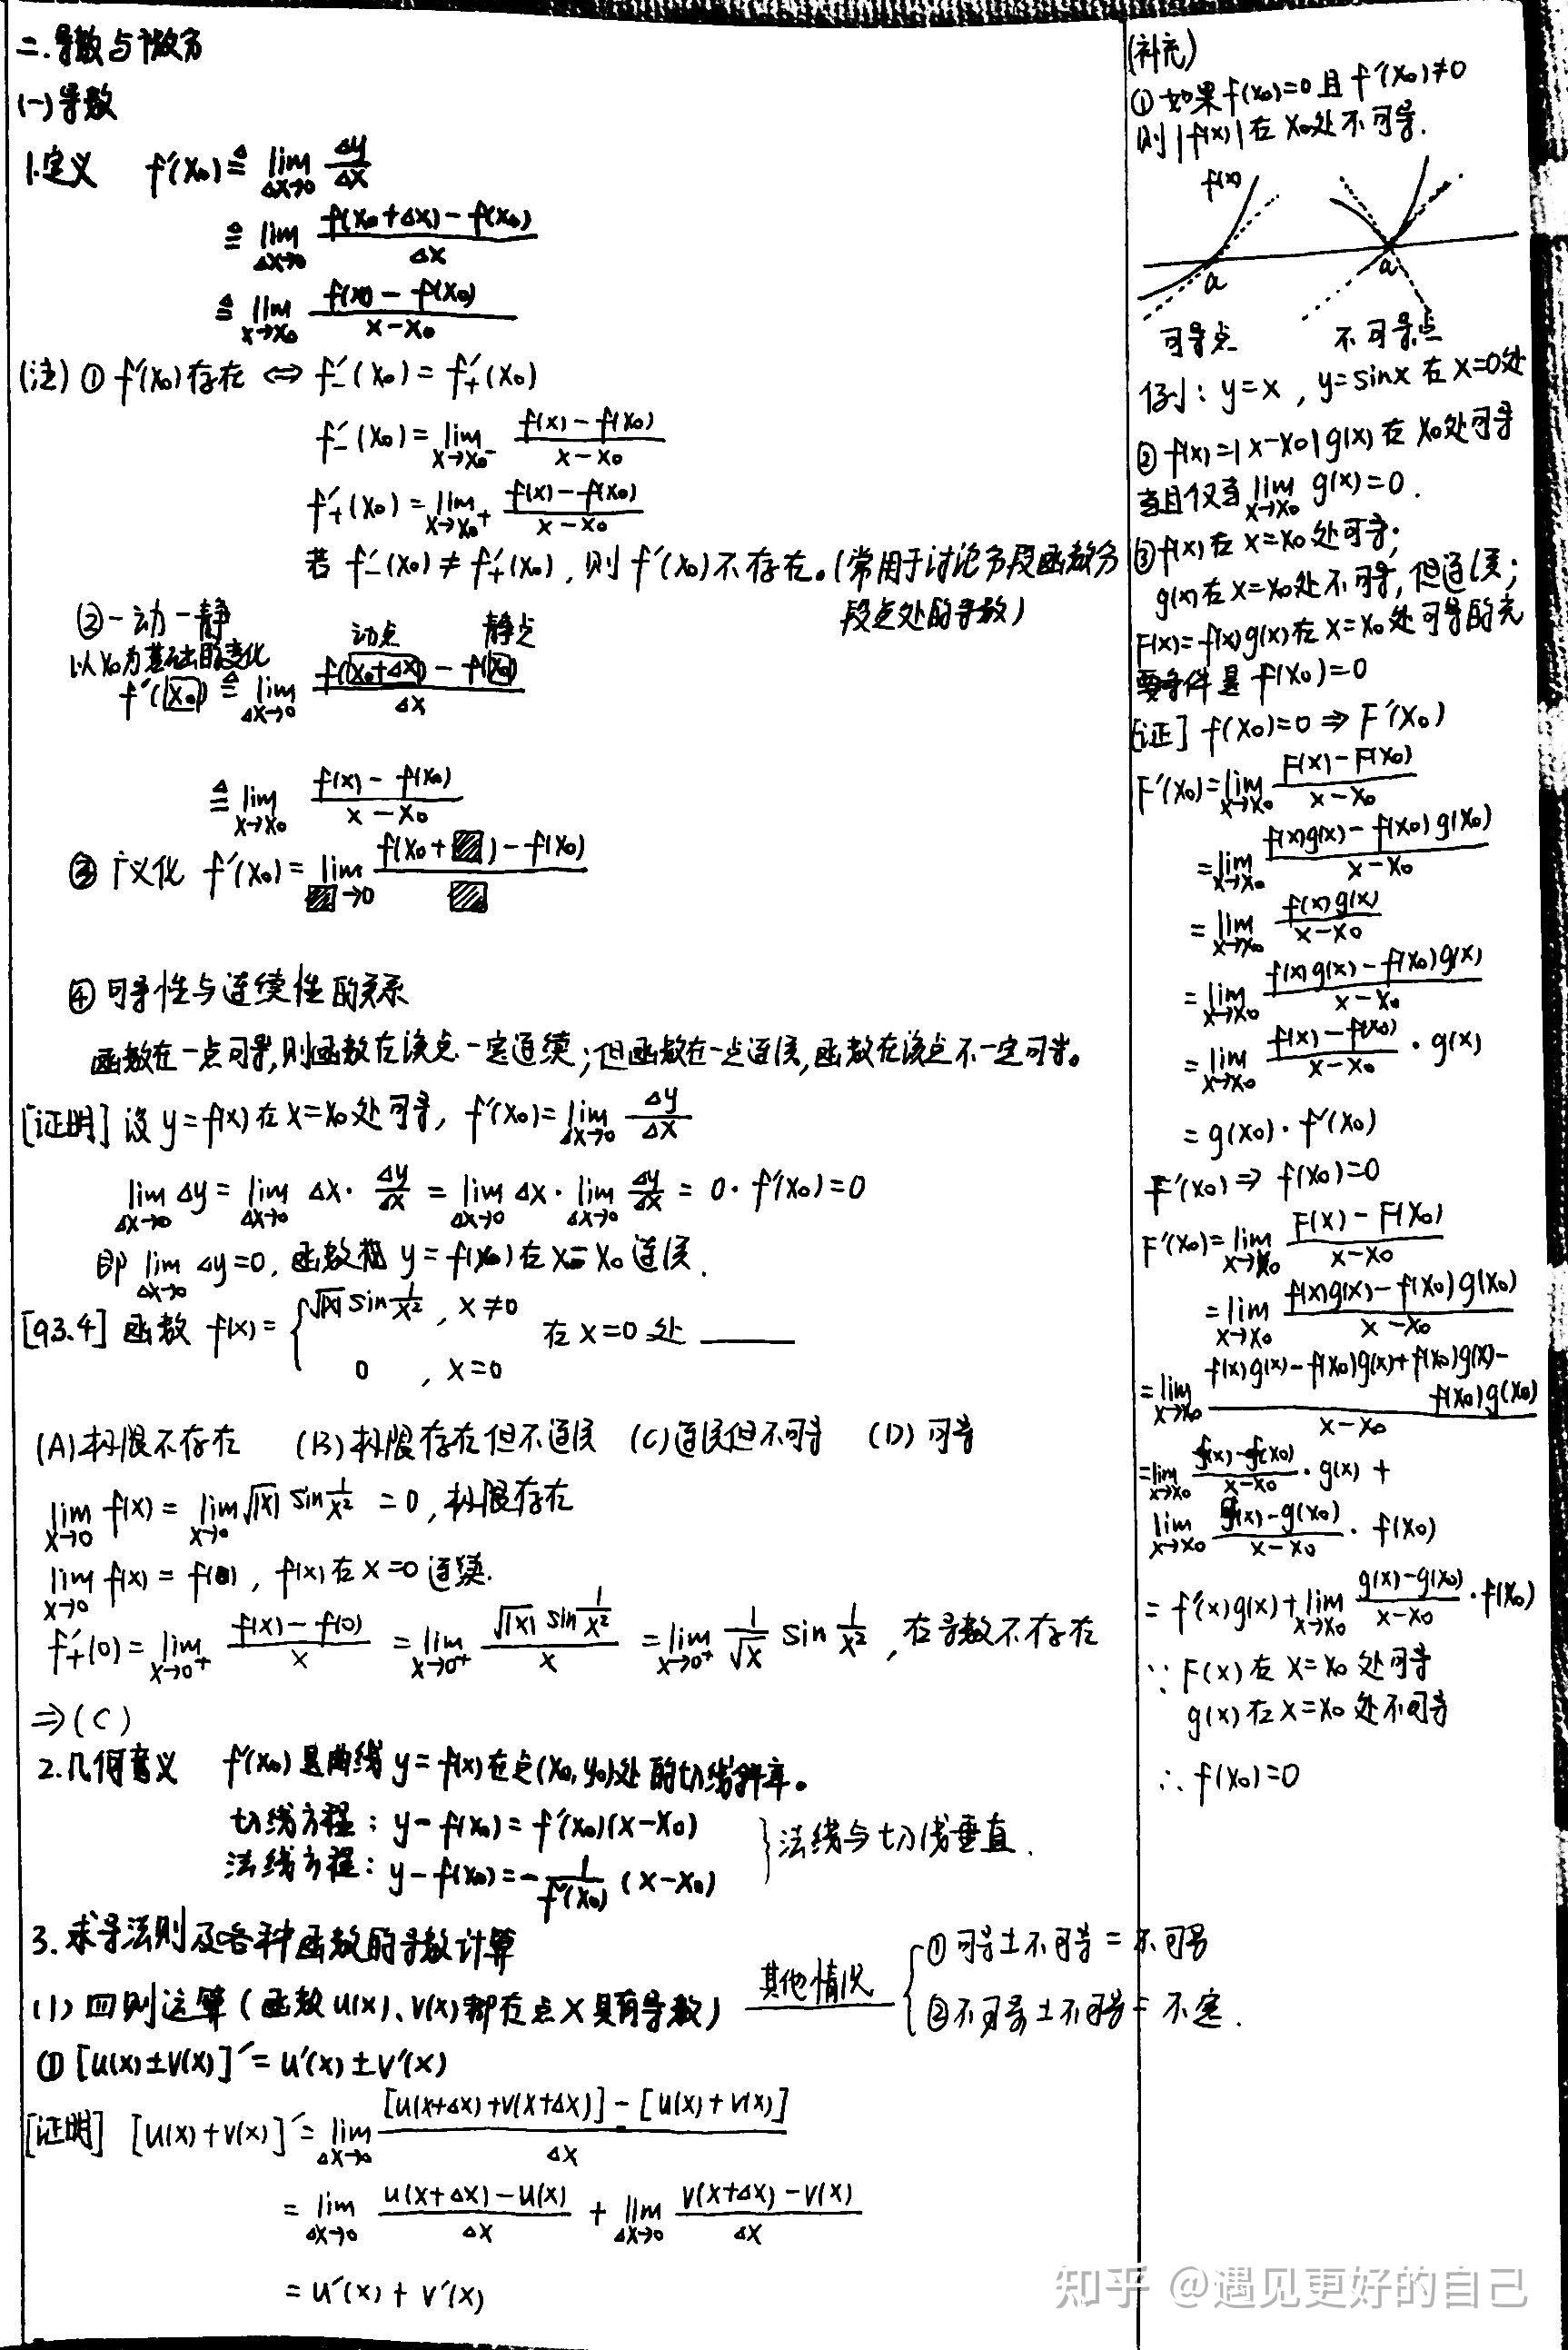 二.导数与微分
(一)导数
1.定义 f′(x₀)≜lim Δx→0 Δy/Δx
≜lim Δx→0 [f(x₀+Δx)-f(x₀)]/Δx
≜lim x→x₀ [f(x)-f(x₀)]/(x-x₀)
(注)① f′(x₀)存在 ⇔ f′₋(x₀)=f′₊(x₀)
f′₋(x₀)=lim x→x₀⁻ [f(x)-f(x₀)]/(x-x₀)
f′₊(x₀)=lim x→x₀⁺ [f(x)-f(x₀)]/(x-x₀)
若 f′₋(x₀)≠f′₊(x₀),则 f′(x₀)不存在。(常用于讨论分段函数分
段点处的导数)
②一动一静
以x₀为基础的变化 动点 静点
f′(x₀)≜lim Δx→0 [f(x₀+Δx)-f(x₀)]/Δx
≜lim x→x₀ [f(x)-f(x₀)]/(x-x₀)
③ 广义化 f′(x₀)=lim ▨→0 [f(x₀+▨)-f(x₀)]/▨
④ 可导性与连续性的关系
函数在一点可导,则函数在该点一定连续;但函数在一点连续,函数在该点不一定可导。
[证明] 设 y=f(x)在 x=x₀处可导, f′(x₀)=lim Δx→0 Δy/Δx
lim Δx→0 Δy=lim Δx→0 Δx·Δy/Δx=lim Δx→0 Δx·lim Δx→0 Δy/Δx=0·f′(x₀)=0
即 lim Δx→0 Δy=0, 函数 y=f(x₀)在 x=x₀连续.
[93.4] 函数 f(x)={√|x| sin 1/x², x≠0
0 , x=0 在 x=0 处 ____
(A)极限不存在 (B)极限存在但不连续 (C)连续但不可导 (D) 可导
lim x→0 f(x)=lim x→0 √|x| sin 1/x²=0,极限存在
lim x→0 f(x)=f(0), f(x)在 x=0 连续.
f′₊(0)=lim x→0⁺ [f(x)-f(0)]/x=lim x→0⁺ [√|x| sin 1/x²]/x=lim x→0⁺ 1/√x sin 1/x²,右导数不存在
⇒(C)
2.几何意义 f′(x₀)是曲线 y=f(x)在点(x₀,y₀)处的切线斜率。
切线方程: y-f(x₀)=f′(x₀)(x-x₀)
法线方程: y-f(x₀)=-1/f′(x₀) (x-x₀)
}法线与切线垂直.
3.求导法则及各种函数的导数计算
(1) 四则运算(函数 u(x)、v(x)都在点 x 具有导数) 其他情况
{①可导±不可导=不可导
②不可导±不可导=不定.
① [u(x)±v(x)]′=u′(x)±v′(x)
[证明] [u(x)+v(x)]′=lim Δx→0 {[u(x+Δx)+v(x+Δx)]-[u(x)+v(x)]}/Δx
=lim Δx→0 [u(x+Δx)-u(x)]/Δx+lim Δx→0 [v(x+Δx)-v(x)]/Δx
=u′(x)+v′(x)
(补充)
①如果 f(x₀)=0 且 f′(x₀)≠0
则|f(x)|在 x₀处不可导.
f(x)
a a
可导点 不可导点
例: y=x, y=sinx 在 x=0处
② f(x)=|x-x₀|g(x)在 x₀处可导
当且仅当 lim x→x₀ g(x)=0.
③f(x)在 x=x₀处可导;
g(x)在 x=x₀处不可导,但连续;
F(x)=f(x)g(x)在 x=x₀处可导的充
要条件是 f(x₀)=0
[证] f(x₀)=0⇒F′(x₀)
F′(x₀)=lim x→x₀ [F(x)-F(x₀)]/(x-x₀)
=lim x→x₀ [f(x)g(x)-f(x₀)g(x₀)]/(x-x₀)
=lim x→x₀ f(x)g(x)/(x-x₀)
=lim x→x₀ [f(x)g(x)-f(x₀)g(x)]/(x-x₀)
=lim x→x₀ [f(x)-f(x₀)]/(x-x₀)·g(x)
=g(x₀)·f′(x₀)
F′(x₀)⇒f(x₀)=0
F′(x₀)=lim x→x₀ [F(x)-F(x₀)]/(x-x₀)
=lim x→x₀ [f(x)g(x)-f(x₀)g(x₀)]/(x-x₀)
=lim x→x₀ [f(x)g(x)-f(x₀)g(x)+f(x₀)g(x)-f(x₀)g(x₀)]/(x-x₀)
=lim x→x₀ [f(x)-f(x₀)]/(x-x₀)·g(x)+
lim x→x₀ [g(x)-g(x₀)]/(x-x₀)·f(x₀)
=f′(x)g(x)+lim x→x₀ [g(x)-g(x₀)]/(x-x₀)·f(x₀)
∵F(x)在 x=x₀处可导
g(x)在 x=x₀处不可导
∴f(x₀)=0
知乎 @遇见更好的自己